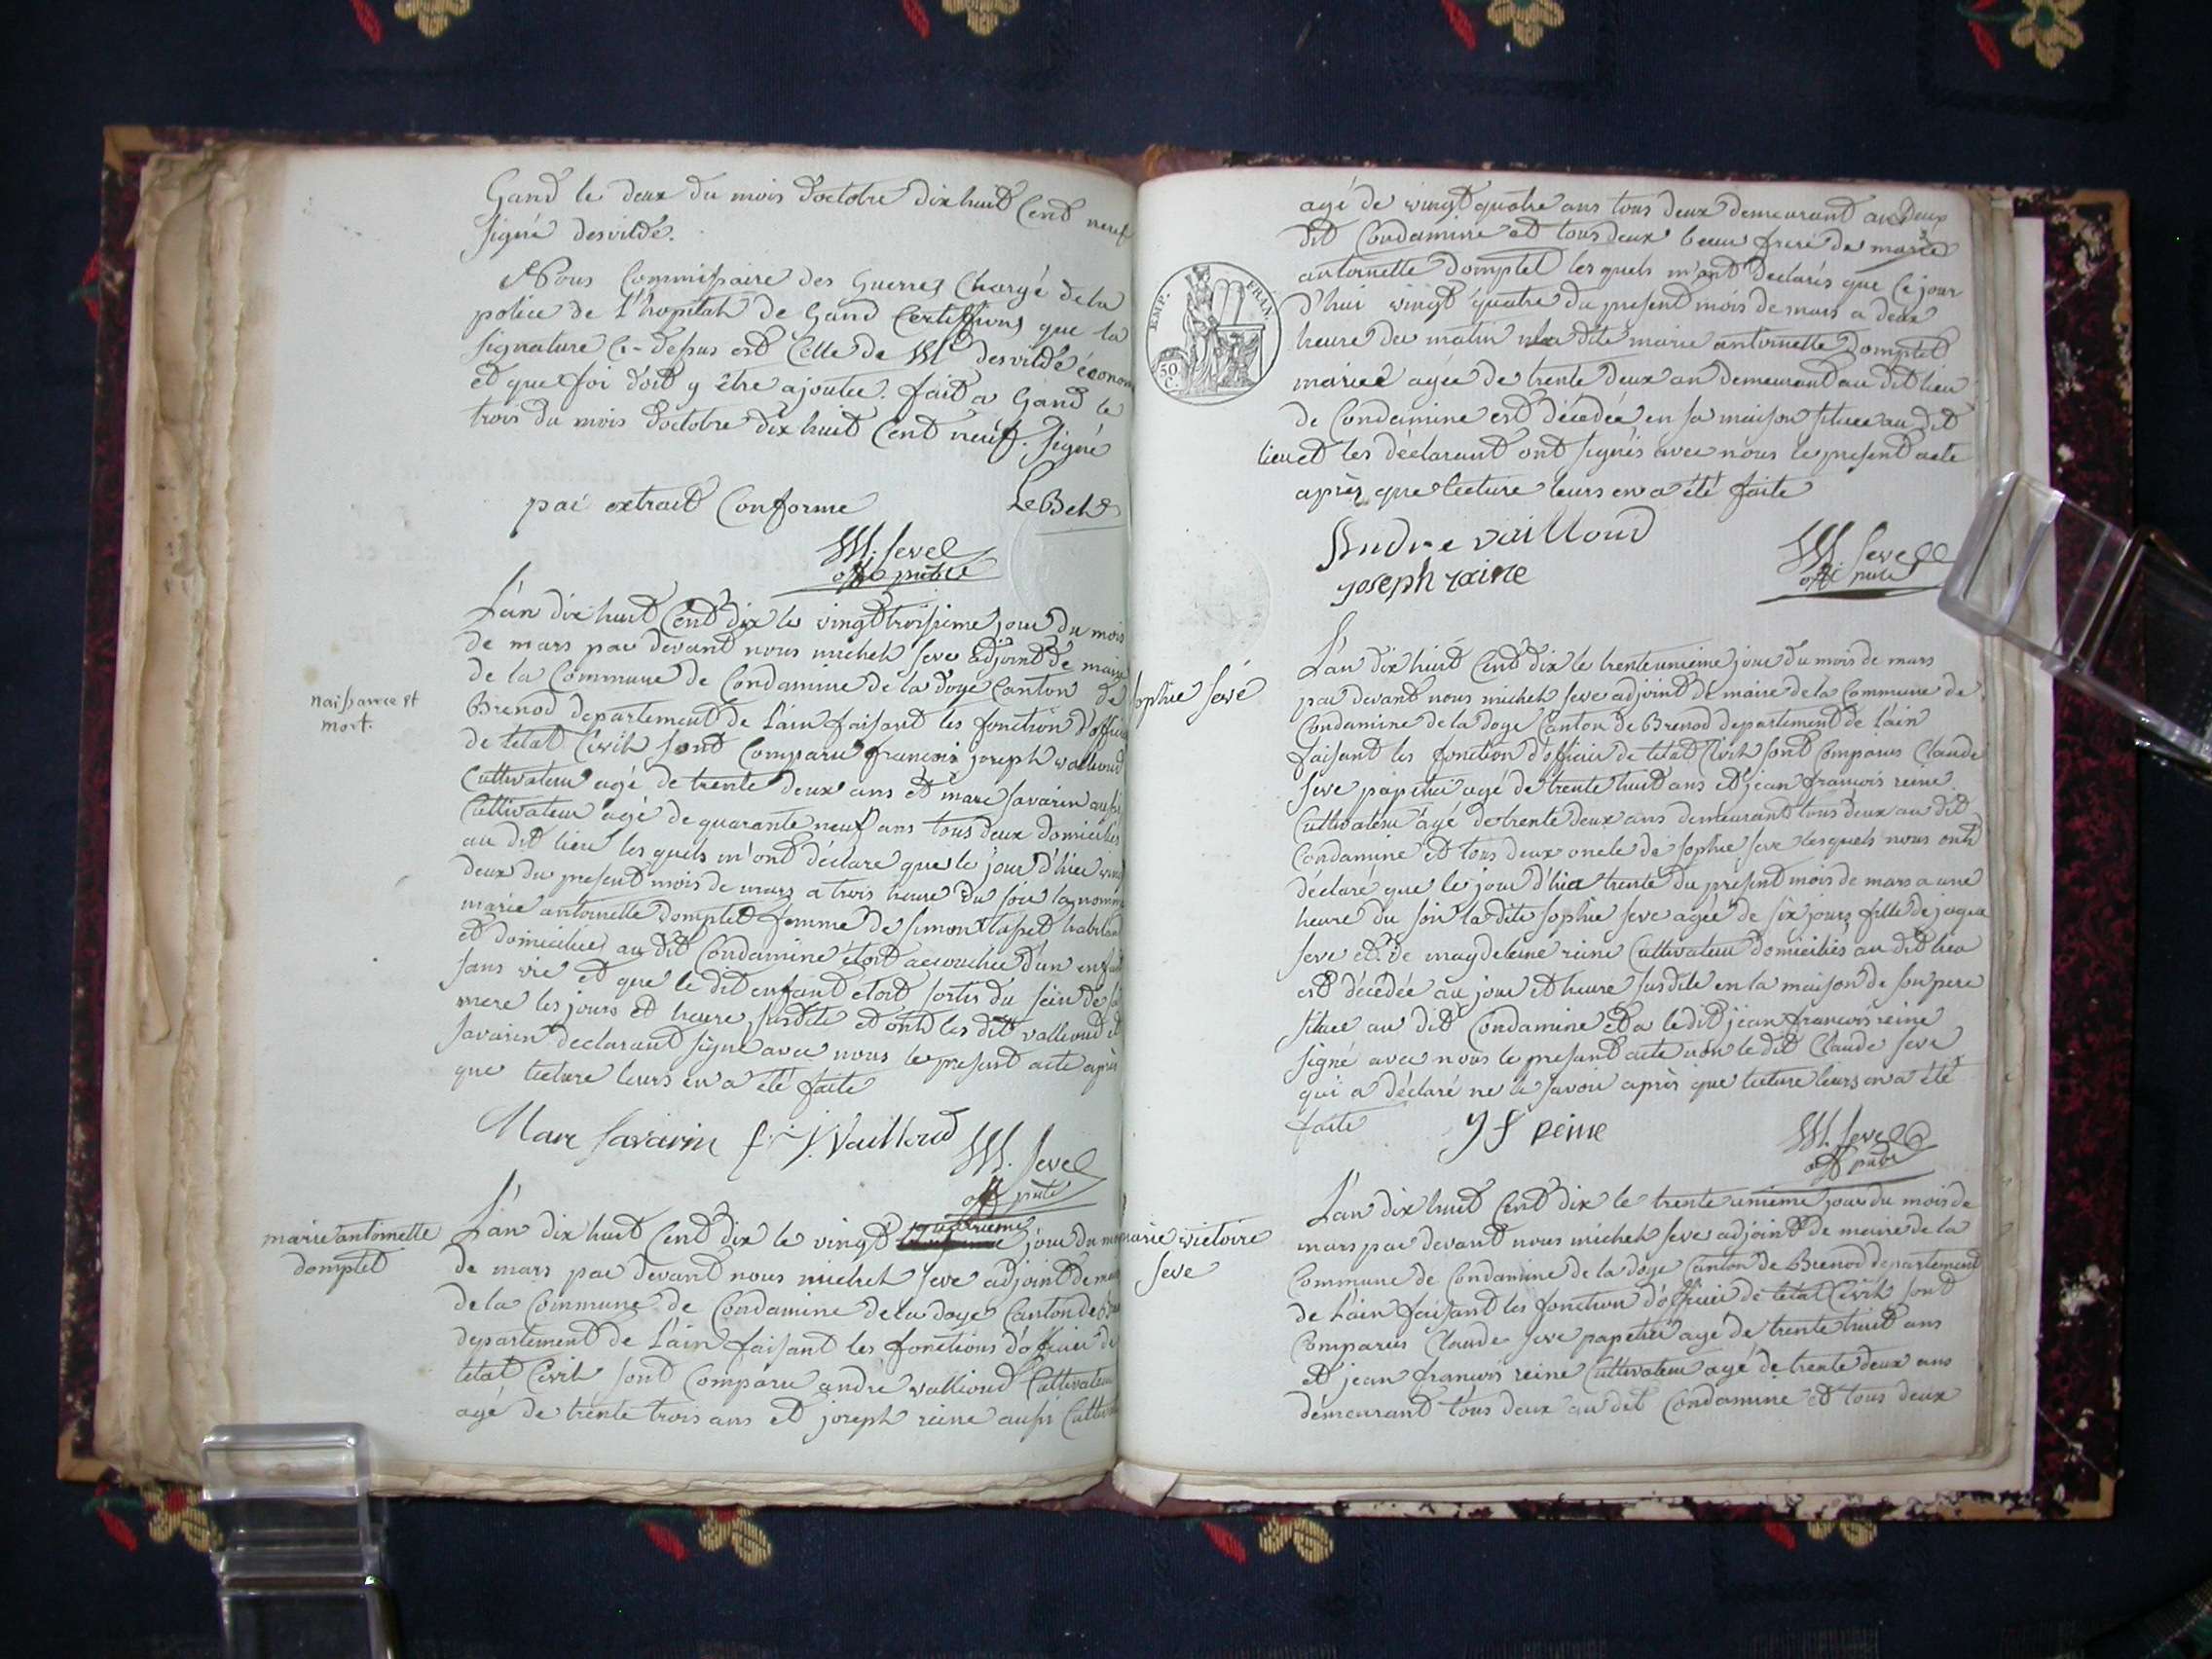 Gand le deux du mois doctobre dix huit Cent neuf
signé desvilde.
Nous Commissaire des Guerres Chargé de la
police de L'hopitah de Gand Certiffions que la
signature Ci-dessus est Celle de Mr desvilde économ
et que foi doit y être ajoutée. fait a Gand le
trois du mois doctobre dix huit Cent neuf. signé
LeBel
par extrait Conforme
M. Seve
offi public
naissance et
mort.
L'an dix huit Cent dix le vingt troisieme jour du mois
de mars par devant nous michel seve adjoint de maire
de la Commune de Condamine de la doye Canton de
Brenod departement de L'ain faisant les fonction d'officier
de letat Civil sont Comparu francois joseph vallioud
Cultivateur agé de trente deux ans et marc savarin aussi
Cultivateur agé de quarante neuf ans tous deux domiciliés
au dit lieu les quels m'ont déclaré que le jour d'hier vingt
deux du present mois de mars a trois heure du soir la nommé
marie antoinette domptet femme de simon tapet habitant
et domiciliée au dit Condamine étoit accouchée d'un enfant
sans vie et que le dit enfant etoit sortis du sein de sa
mere les jours et heure susdite et ont les dit vallioud et
savarin declarant signé avec nous le present acte après
que lecture leurs en a été faite
Marc Savarin f. J. Vailloud
M. Seve
off public
marie antoinette
domptet
L'an dix huit Cent dix le vingt quatrieme jour du mois
de mars par devant nous michel seve adjoint de maire
de la Commune de Condamine de la doye Canton de B
departement de L'ain faisant les fonctions d'officier de
letat Civil sont Comparu andré vallioud Cultivateur
agé de trente trois ans et joseph reine aussi Cultiva
agé de vingt quatre ans tous deux demeurant au deux
dit Condamine et tous deux beau frere de marie
antoinette domptet les quels m'ont declarés que Ce jour
d'hui vingt quatre du present mois de mars a deux
heure du matin la dite marie antoinette domptet
mariee agée de trente deux an demeurant au dit lieu
de Condamine est décédée en sa maison situee au dit
lieu et les déclarant ont signés avec nous le present acte
après que lecture leurs en a été faite
EMP. FRAN.
50 C.
Andre vailloud
joseph raine
M. Seve
offi public
sophie sevé
L'an dix huit Cent dix le trente unieme jour du mois de mars
par devant nous michel seve adjoint de maire de la Commune de
Condamine de la doye Canton de Brenod departement de L'ain
faisant les fonction d'officier de letat Civil sont Comparus Claude
seve papetier agé de trente huit ans et jean francois reine
Cultivateur agé de trente deux ans demeurant tous deux au dit
Condamine et tous deux oncle de sophie seve lesquels nous ont
déclaré que le jour d'hier trente du present mois de mars a une
heure du soir la dite sophie seve agée de six jours fille de jaque
seve et de magdeleine reine Cultivateur domiciliés au dit lieu
est décédée au jour et heure susdite en la maison de son pere
situee au dit Condamine et a le dit jean francois reine
signé avec nous le present acte non le dit Claude seve
qui a déclaré ne le savoir après que lecture leurs en a été
faite
J f reine
M. Seve
off public
marie victoire
seve
L'an dix huit Cent dix le trente unieme jour du mois de
mars par devant nous michel seve adjoint de maire de la
Commune de Condamine de la doye Canton de Brenod departement
de L'ain faisant les fonction d'officier de letat Civil sont
Comparus Claude seve papetier agé de trente huit ans
et jean francois reine Cultivateur agé de trente deux ans
demeurant tous deux au dit Condamine et tous deux